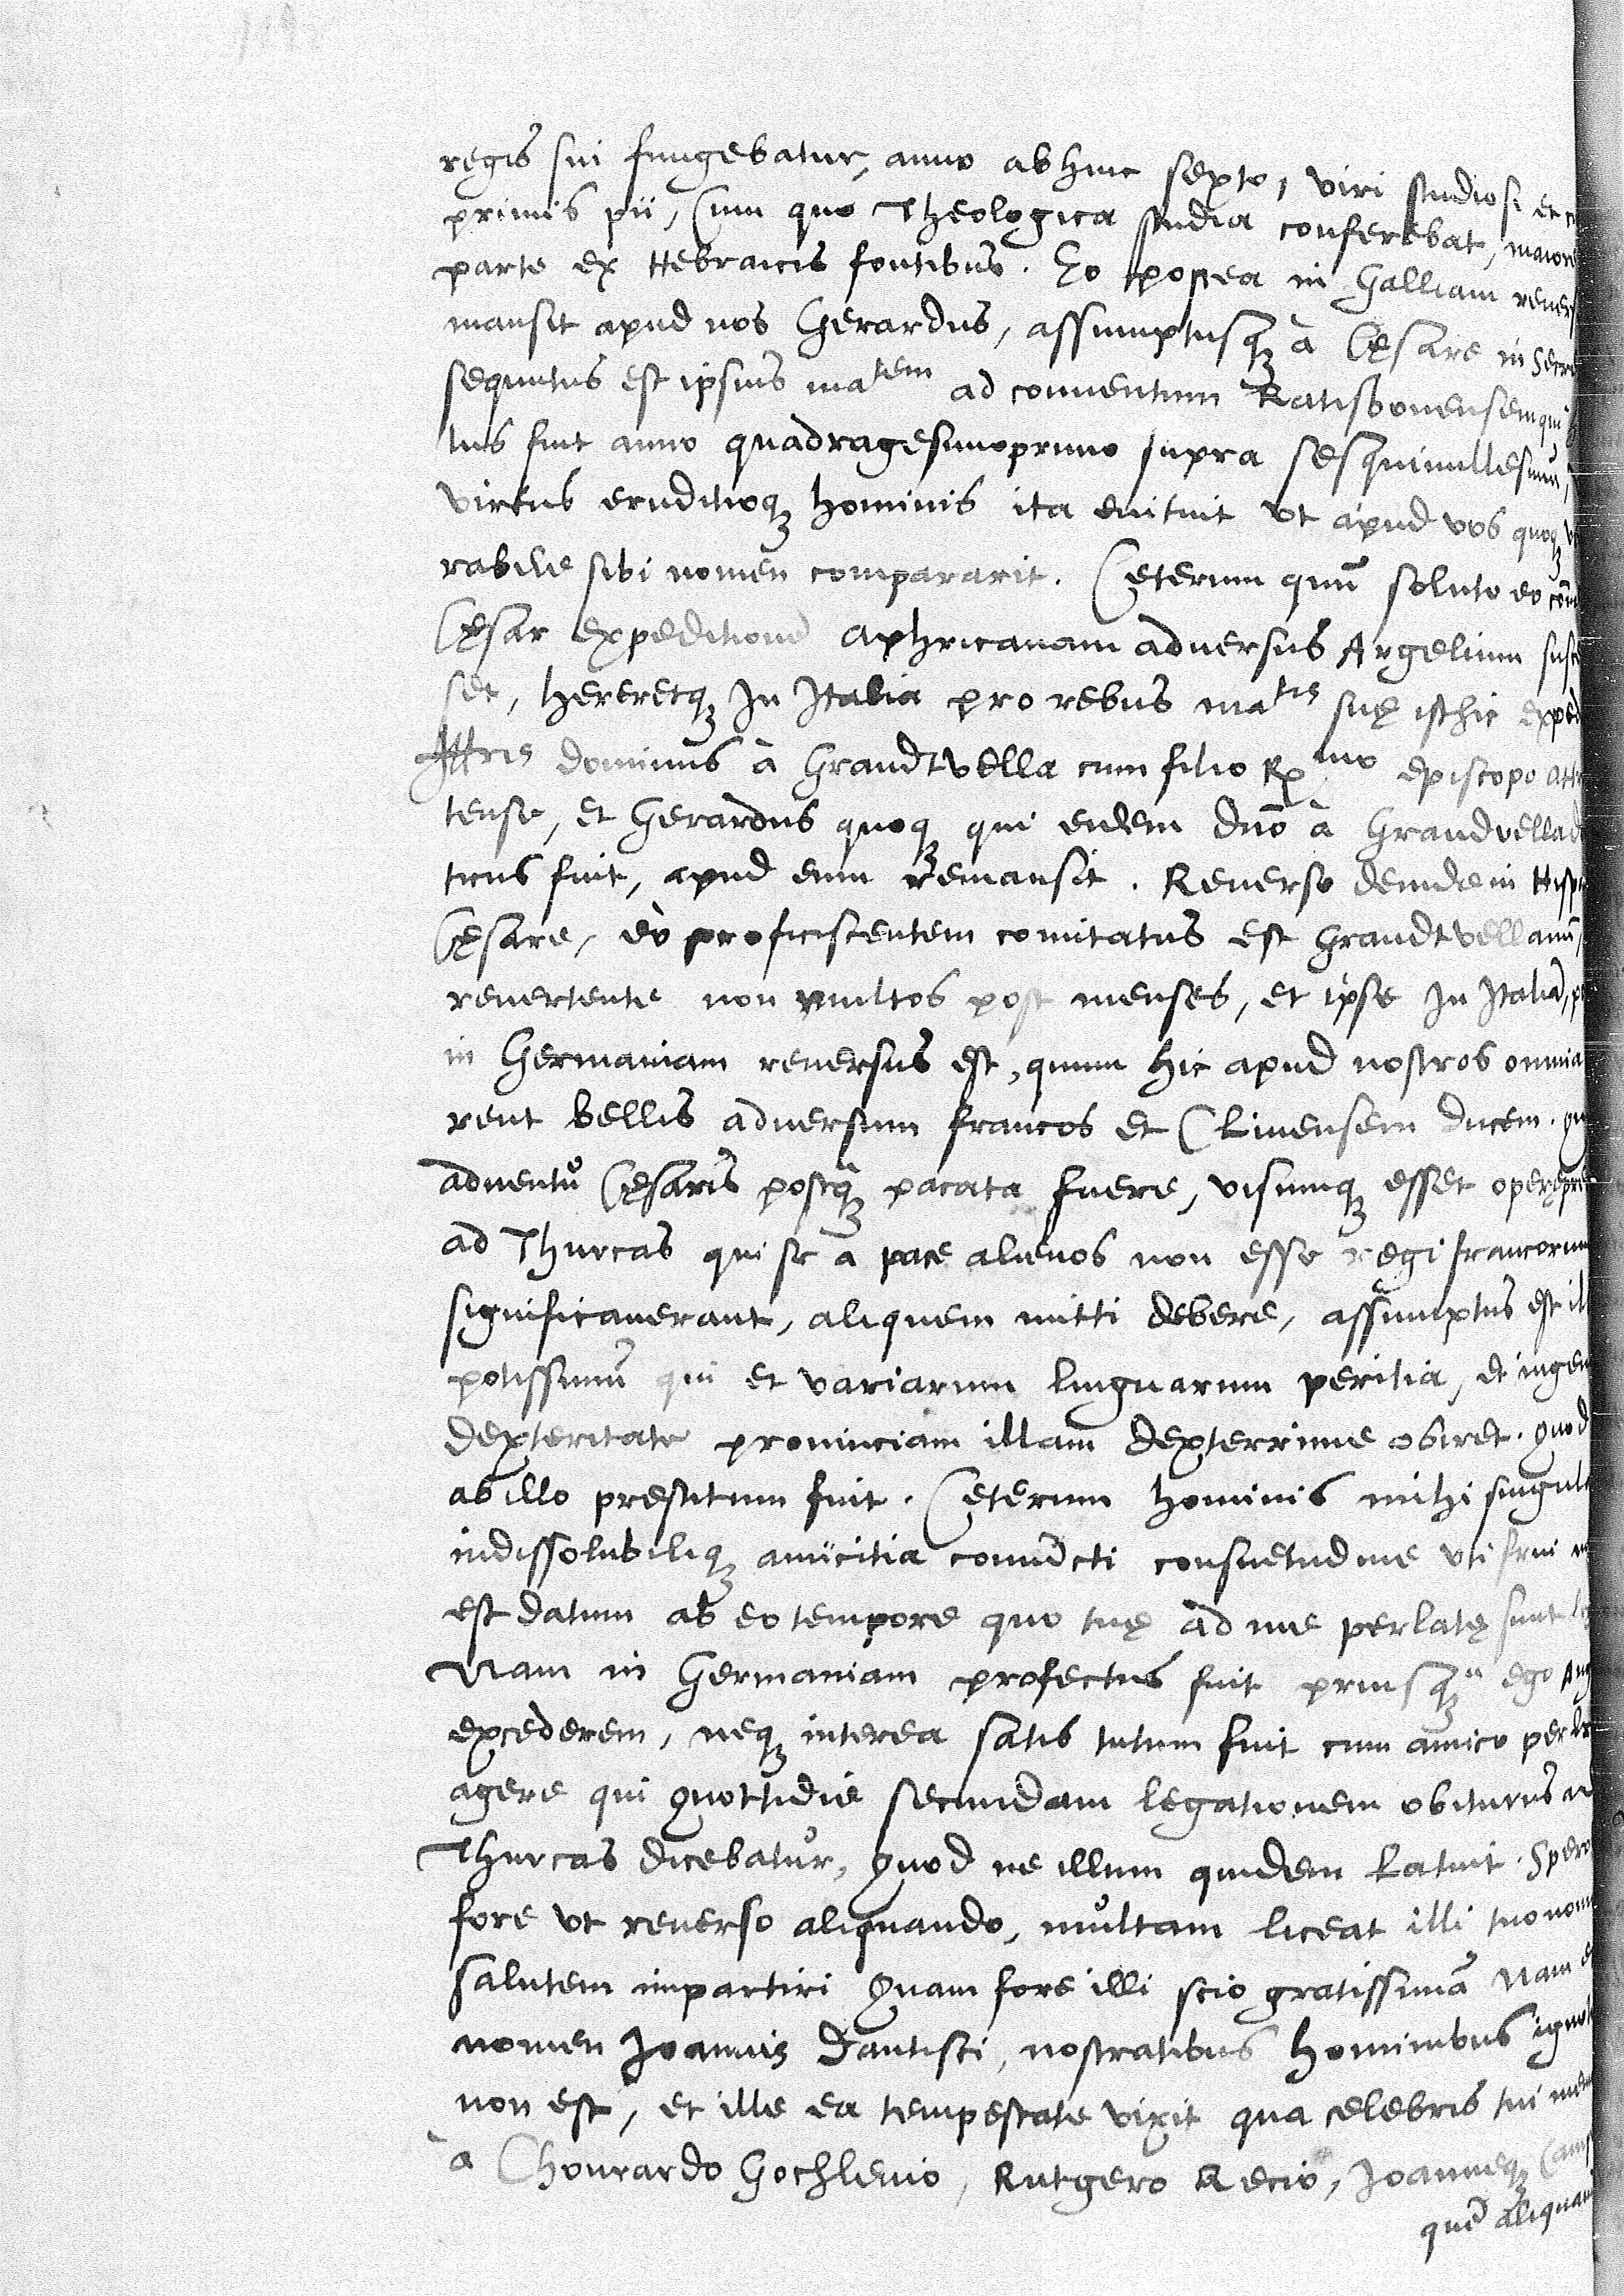 regis sui fungebatur, anno abhinc sexto, viri studiosi et
primis pii, Cum quo Theologica studia conferebat, maiore
parte ex Hebraicis fontibus. Eo postea in Galliam revers
mansit apud nos Gerardus, assumptusq3 à Cęsare in Secre
sequutus est ipsius matem ad conventum Ratisbonensem qui
tus fuit anno quadragesimoprimo supra sesquimillesimū,
virtus eruditioq3 hominis ita enituit vt apud vos quoq3
rabile sibi nomen compararit. Cęterum quū soluto eo cōv
Cęsar expeditionē Aphricanam adversus Argelium susce
set, hereretq3 In Italia pro rebus matis suę isthic exped
Illtris dominus à Grandtvella cum filio Rmo episcopo Att
tense, et Gerardus quoq3 qui eidem dnō à Grandvella
tus fuit, apud eum remansit. Reverso deinde in Hisp
Cęsare, eò proficiscentem comitatus est Grandtvellanū,
revertente non multos post menses, et ipse In Italiā, p
in Germaniam reversus est, quum hic apud nostros omnia
rent bellis adversum francos et Clivensem ducem. qu
adventu Cęsaris postq3 pacata fuere, visumq3 esset operępre
ad Thurcas qui se à pace alienos non esse regi francorum
significaverant, aliquem mitti debere, assumptus est il
potissimū qui et variarum linguarum peritia, et ingen
dexteritate provinciam illam dexterrime obiret. quod
ab illo prestitum fuit. Cęterum hominis mihi singula
indissolubiliq3 amicitia coniūcti consuetudine vti frui
est datum ab eo tempore quo tuę ad me perlatę sunt
Nam in Germaniam profectus fuit priusq3 ego
excederem, neq3 interea satis tutum fuit cum amico per
agere qui quottidie secundam legationem obiturus
Thurcas dicebatur, quod ne illum quidem latuit. Spero
fore vt reverso aliquando, multam liceat illi tuo nom
salutem impartiri quam fore illi scio gratissimā Nam
nomen Joannis Dantisci, nostratibus hominibus ignot
non est, et ille ea tempestate vixit qua celebris tui
à Chonrardo Gochlenio, Rutgero Recio, Joanneq3 Camp
quē aliquan